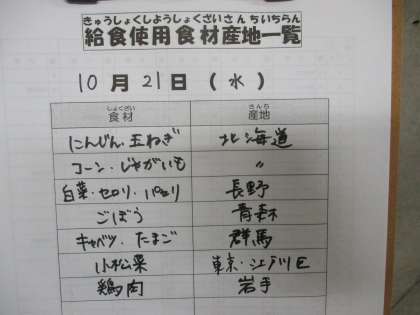 きゅうしょくしようしょくざいさんちいちらん
給食使用食材産地一覧
10月21日(水)
しょくざい さんち
食材 産地
にんじん・玉ねぎ 北海道
コーン・じゃがいも 〃
白菜・セロリ・パセリ 長野
ごぼう 青森
キャベツ・たまご 群馬
小松菜 東京・江戸川区
鶏肉 岩手